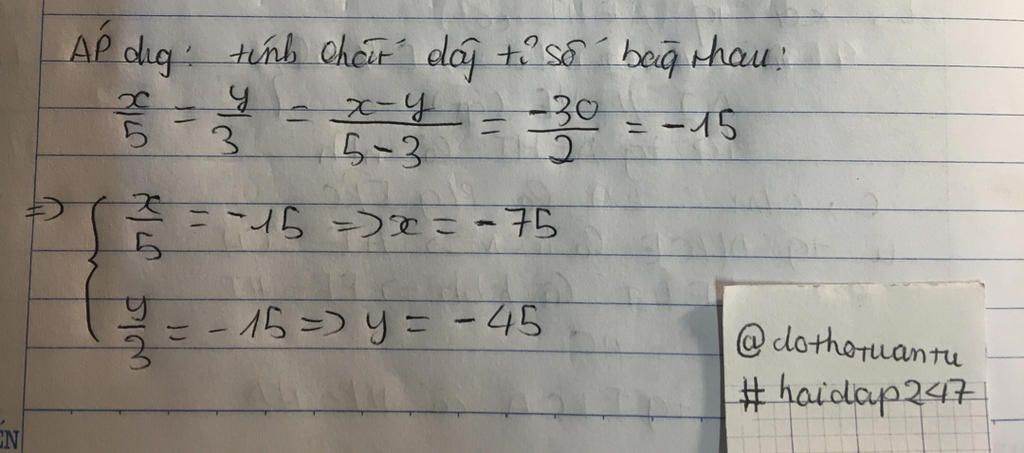 ÁP dụg: tính chất dãy tỉ số bag nhau:
x/5 = y/3 = x-y/5-3 = -30/2 = -15
=> { x/5 = -15 => x = -75
y/3 = -15 => y = -45
@dothotuantu
# haidap247
ÊN